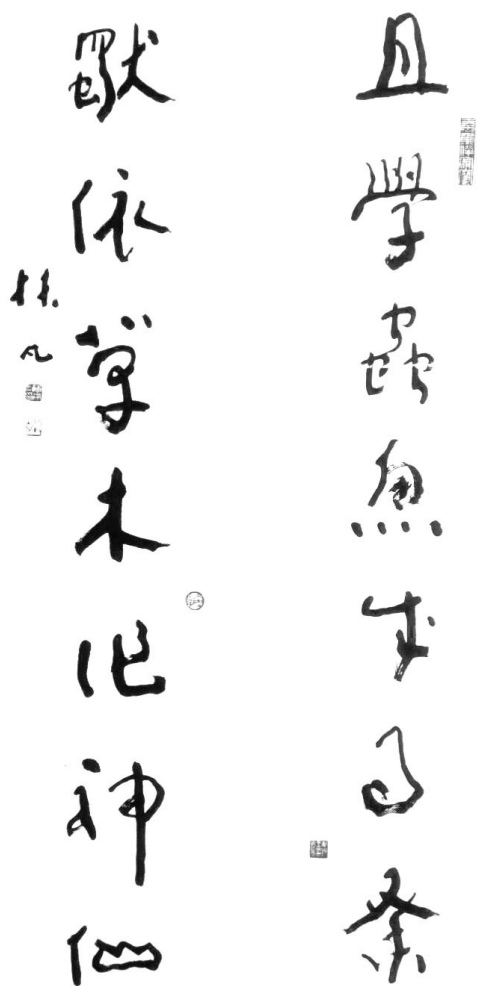 且學蟲魚成事業
獨依草木作神仙
林凡